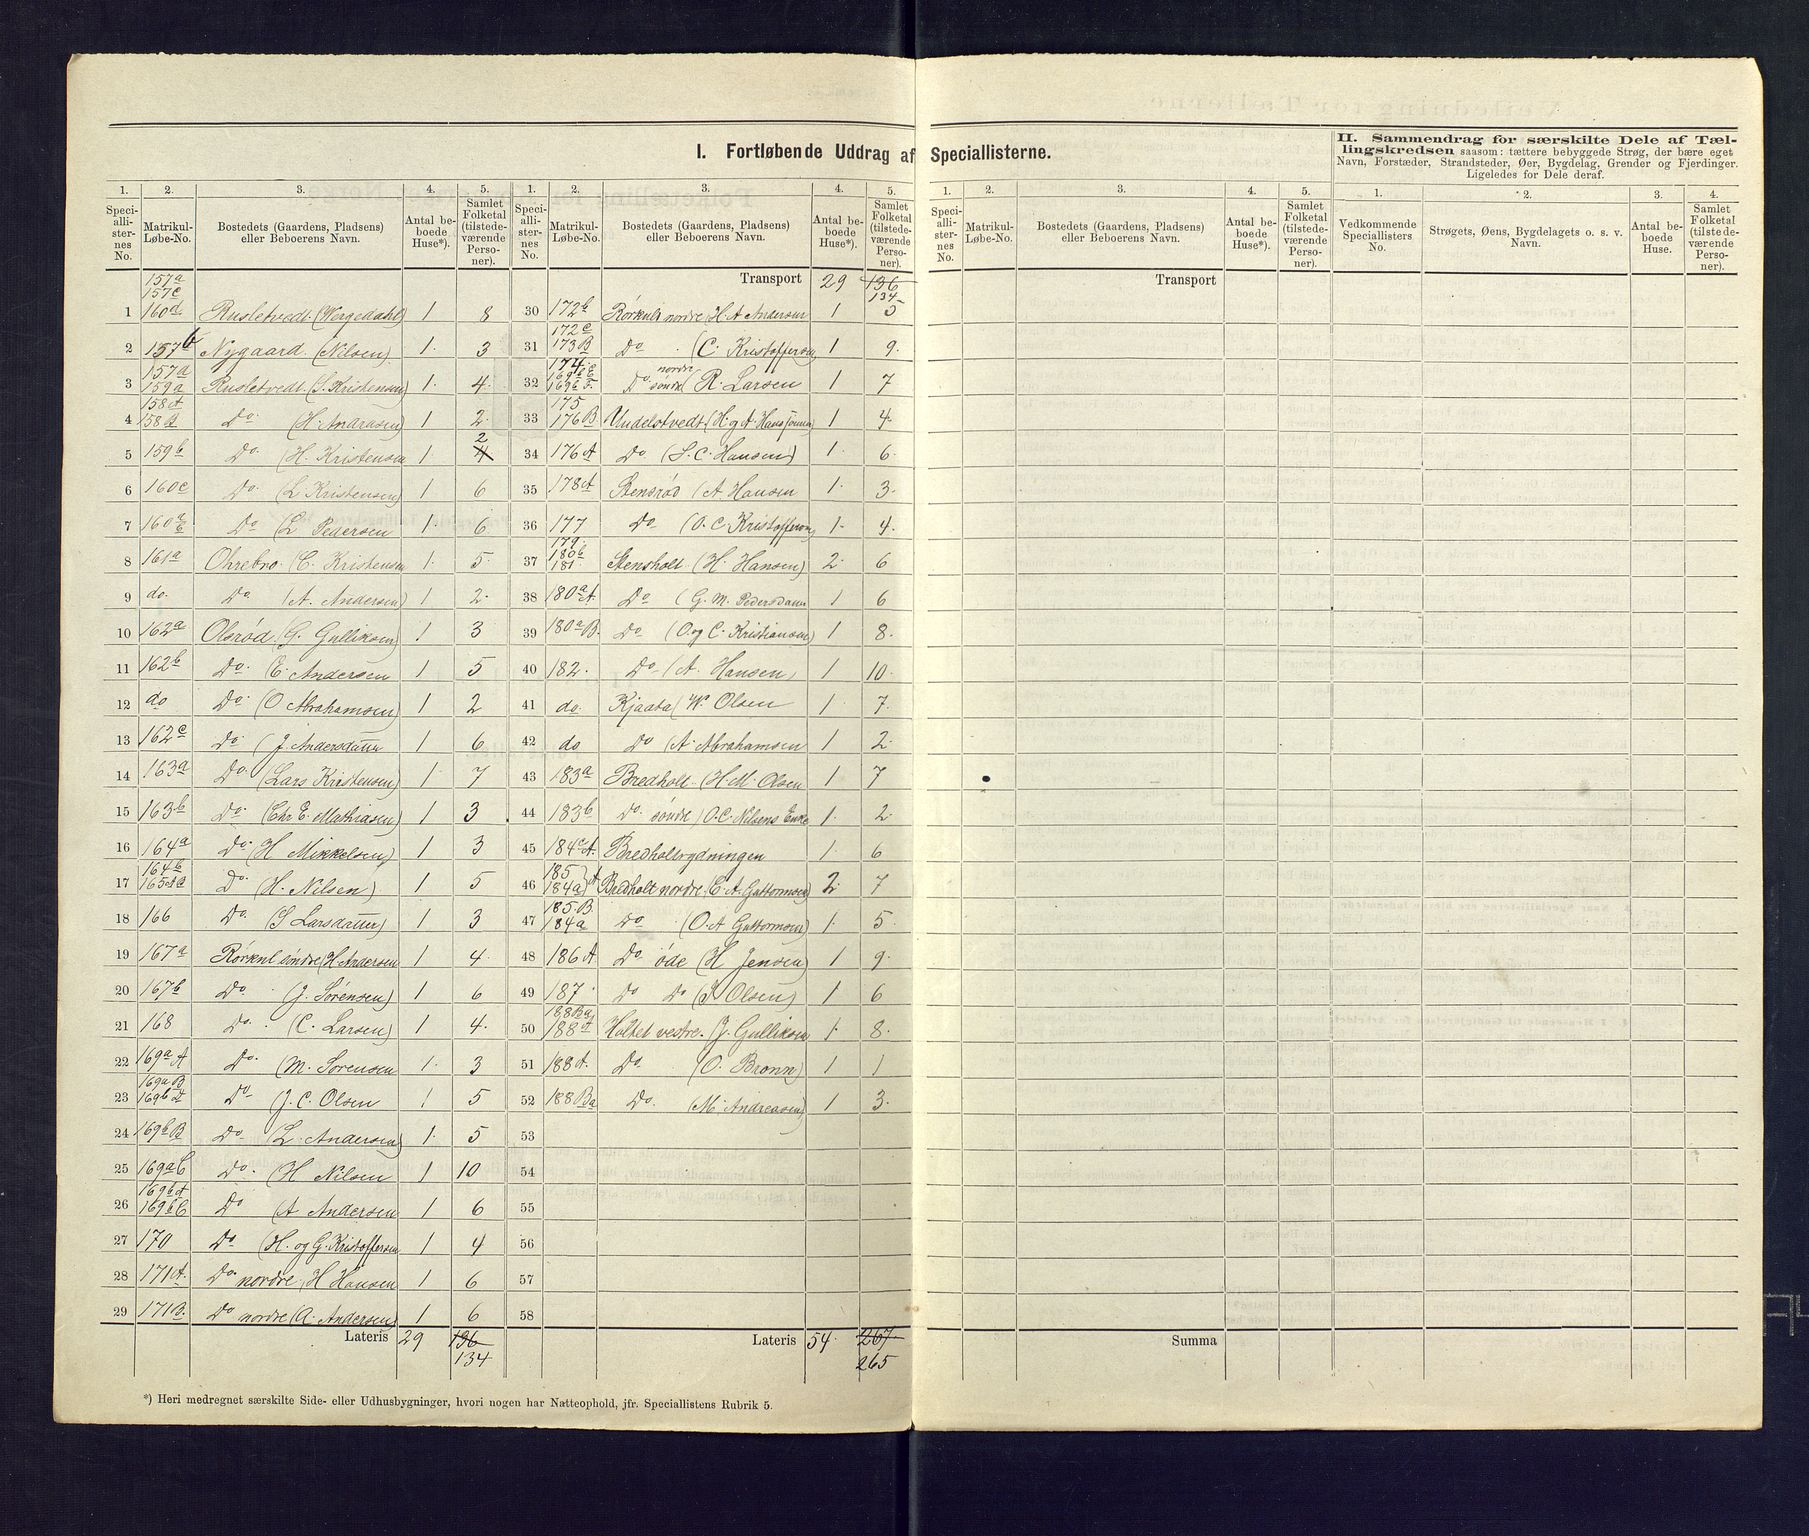 I. Fortløbende Uddrag af Speciallisterne.
II. Sammendrag for særskilte Dele af Tæl-
lingskredsen saasom: tættere bebyggede Strøg, der bære eget
Navn, Forstæder, Strandsteder, Øer, Bygdelag, Grender og Fjerdinger.
Ligeledes for Dele deraf.
1. 2. 3. 4. 5. 1. 2. 3. 4. 5. 1. 2. 3. 4. 5. 1. 2. 3. 4.
Speci-alli-ster-nes No. Matrikul-Løbe-No. Bostedets (Gaardens, Pladsens) eller Beboerens Navn. Antal be-boede Huse*). Samlet Folketal (tilstede-værende Perso-ner).
Speci-alli-ster-nes No. Matrikul-Løbe-No. Bostedets (Gaardens, Pladsens) eller Beboerens Navn. Antal be-boede Huse*). Samlet Folketal (tilstede-værende Perso-ner).
Speci-alli-ster-nes No. Matrikul-Løbe-No. Bostedets (Gaardens, Pladsens) eller Beboerens Navn. Antal be-boede Huse*). Samlet Folketal (tilstede-værende Perso-ner).
Vedkommende Speciallisters No. Strøgets, Øens, Bygdelagets o. s. v. Navn. Antal be-boede Huse. Samlet Folketal (tilstede-værende Perso-ner).
157a
157c
1 160d Rusletvedt (Wergedahl) 1 8
2 157b Nygaard (Nilsen) 1 3
157a
3 159a Rusletvedt (S. Kristensen) 1 4
158A
4 158B Do (H. Andreasen) 1 2
2
5 159b Do (H. Kristensen 1 4
6 160c Do (L Kristensen) 1 6
7 160a b Do (L Pedersen 1 6
8 161a Ohrebro (C. Kristensen 1 5
9 do. Do (A. Andersen) 1 2
10 162a Olsrød (G. Gulliksen) 1 3
11 162b Do (E. Andersen 1 5
12 do Do (O Abrahamsen) 1 2
13 162c Do (J. Andersdatter 1 6
14 163a Do (Lars Kristensen) 1 7
15 163b Do (Chr E. Mathiasen) 1 3
16 164a Do (H Mikkelsen) 1 3
164b
17 165Aa Do (H. Nilsen) 1 5
18 166 Do (S Larsdatter) 1 3
19 167a Rørkul søndre (H. Andersen 1 4
20 167b Do (J. Sørensen) 1 6
21 168 Do (C. Larsen) 1 4
22 169aA Do (M. Sørensen 1 3
169aB
23 169bD Do (J. C. Olsen 1 5
24 169bB Do (L. Andersen) 1 5
25 169aC Do (H Nilsen 1 10
169bA
26 169bC Do (A Andersen 1 6
27 170 Do (H. og G. Kristoffersen 1 4
28 171A Do nordre (H Hansen 1 6
29 171B. Do nordre (A. Andersen) 1 6
Lateris 29 136
134
Transport 29 136
134
30 172b Rørkul nordre (H. A Andersen 1 3
172c
31 173B Do (C. Kristoffersen 1 9
174
32 Do nordre søndre R. Larsen 1 7
175
33 176B Undelstvedt (H. g A. Hans 1 4
34 176A Do (S. C. Hansen) 1 6
35 178A Stensrød (A Hansen 1 3
36 177 Do (O. C. Kristoffersen) 1 4
179
180b
37 181 Stensholt (H. Hansen) 2 6
38 180aA. Do (G. M. Pedersdatter 1 6
39 180aB. Do (O. og C. Kristiansen) 1 8
40 182 Do (A. Hansen) 1 10
41 do Kjaata (W. Olsen 1 7
42 do Do (A. Abrahamsen 1 2
43 183a Bredholt (H. M. Olsen 1 7
44 183b Do søndre (O. C. Nilsens Enke 1 2
45 184cA. Bredholtrydningen 1 6
185
46 184a}A Bredholt nordre (E. A. Guttormsen) 2 7
185.B
47 184a Do (O. A Guttormsen) 1 5
48 186A Do øde (H Jensen) 1 9
49 187 Do Do (J Olsen) 1 6
188Ba
50 188A Holtet vestre. (J. Gulliksen 1 8
51 188A. Do (O. Bronn) 1 1
52 188Ba Do (M. Andreasen) 1 3
53
54
55
56
57
58
Lateris 54 267
265
Transport
Summa
*) Heri medregnet særskilte Side- eller Udhusbygninger, hvori nogen har Natteophold, jfr. Speciallistens Rubrik 5.